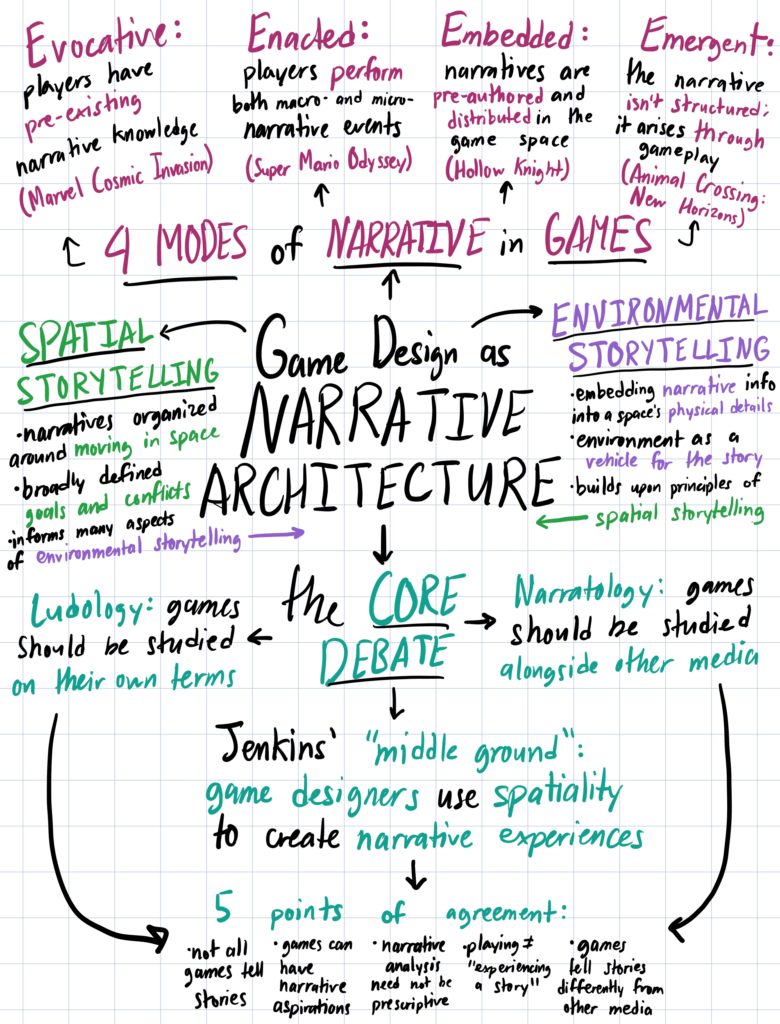 Evocative:
players have
pre-existing
narrative knowledge
(Marvel Cosmic Invasion)
Enacted:
players perform
both macro- and micro-
narrative events
(Super Mario Odyssey)
Embedded:
narratives are
pre-authored and
distributed in the
game space
(Hollow Knight)
Emergent:
the narrative
isn't structured;
it arises through
gameplay
(Animal Crossing:
New Horizons)
4 MODES of NARRATIVE in GAMES
SPATIAL
STORYTELLING
·narratives organized
around moving in space
·broadly defined
goals and conflicts
·informs many aspects
of environmental storytelling
Game Design as
NARRATIVE
ARCHITECTURE
ENVIRONMENTAL
STORYTELLING
·embedding narrative info
into a space's physical details
·environment as a
vehicle for the story
·builds upon principles of
spatial storytelling
the CORE
DEBATE
Ludology: games
should be studied
on their own terms
Narratology: games
should be studied
alongside other media
Jenkins' "middle ground":
game designers use spatiality
to create narrative experiences
5 points of agreement:
·not all
games tell
stories
·games can
have
narrative
aspirations
·narrative
analysis
need not be
prescriptive
·playing ≠
"experiencing
a story"
·games
tell stories
differently from
other media